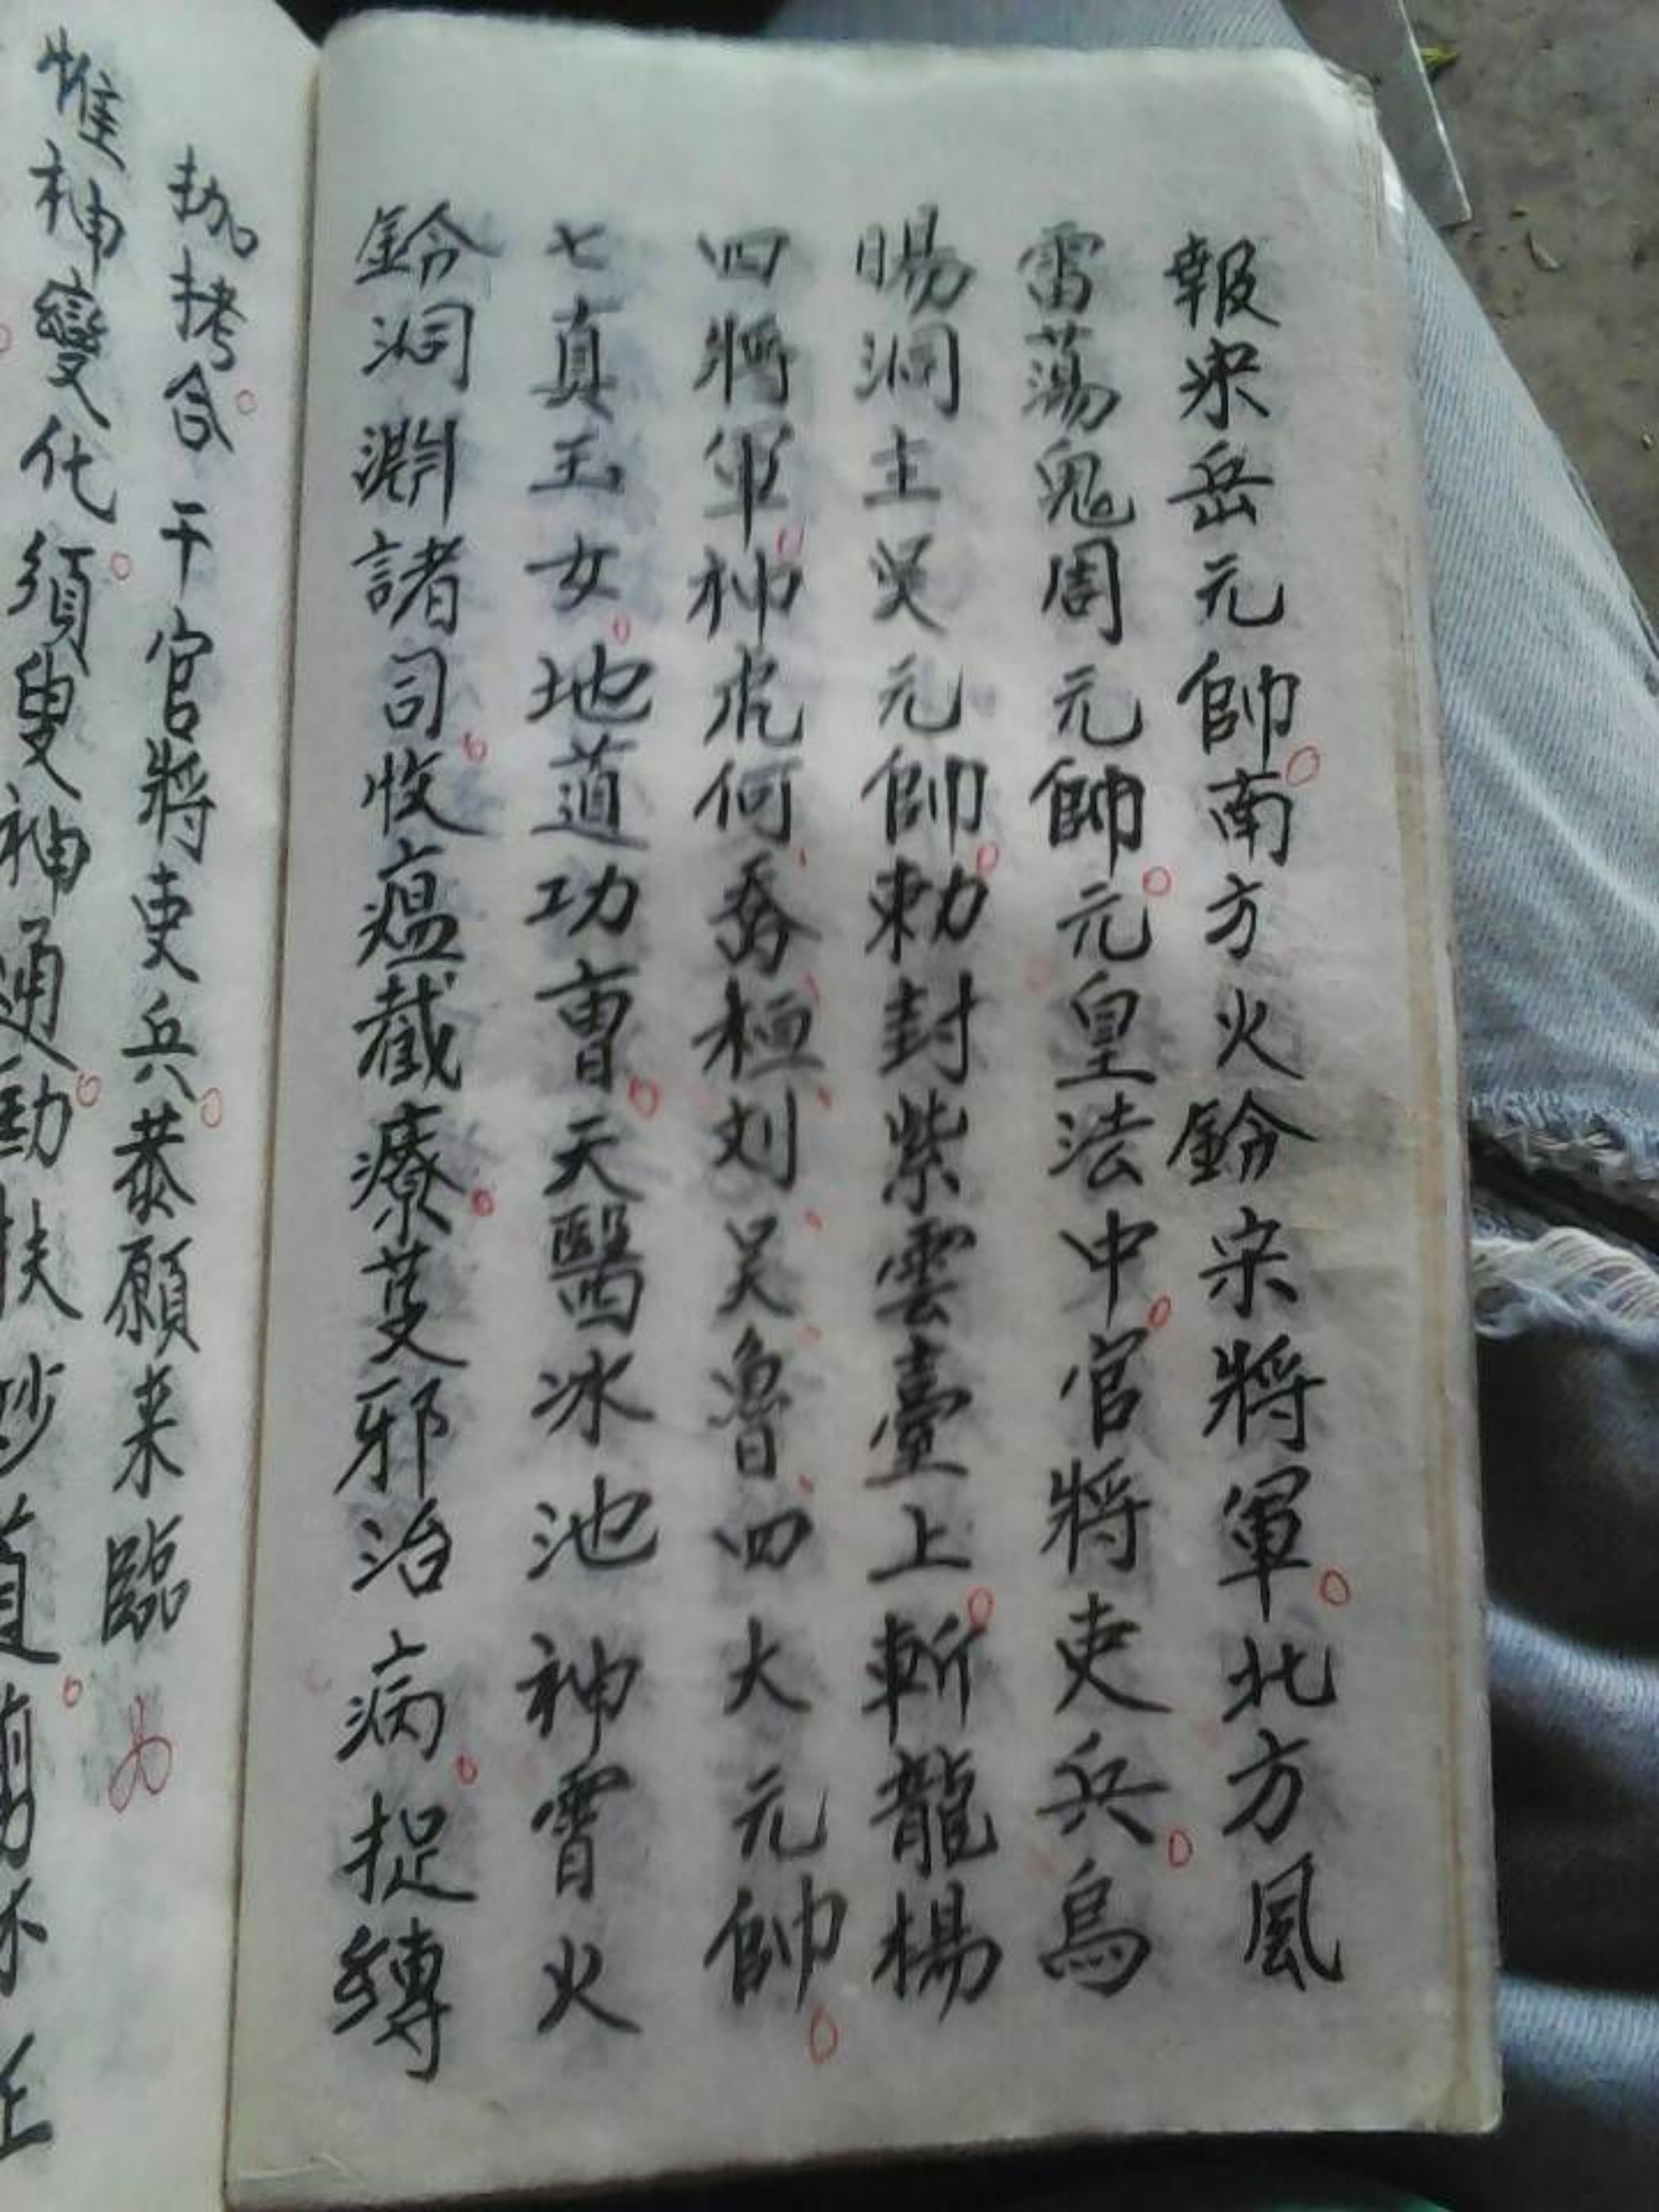 報宋岳元帥南方火鈴宋將軍北方風
雷蕩鬼周元帥元皇法中官將吏兵烏
暘洞主吳元帥勅封紫雲臺上斬龍楊
四將軍神虎何喬桓刘吴魯四大元帥
七真玉女地道功曹天醫冰池神霄火
鈴洞淵諸司收瘟截療蔓邪治病捉縛
枷拷合干官將吏兵恭願来臨
惟神變化須叟神通劲扶妙道剪